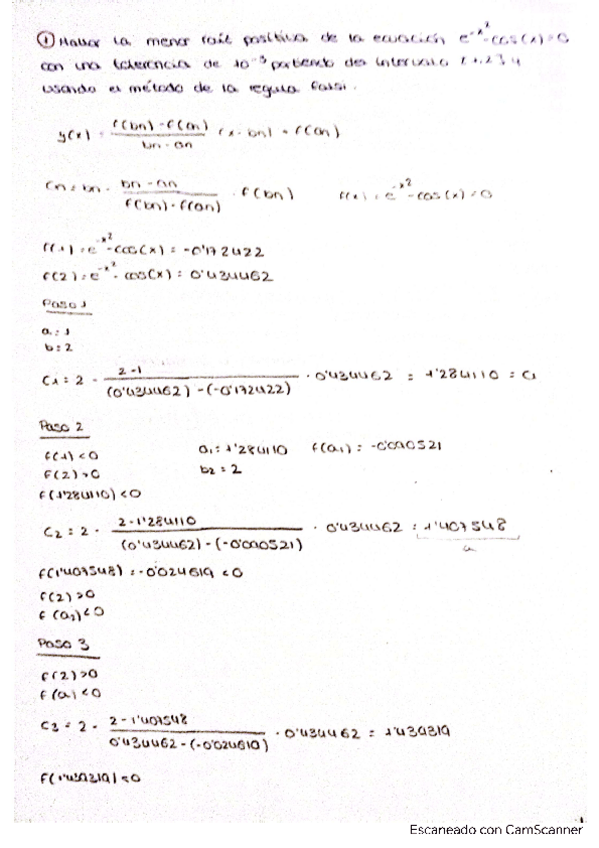 ① Hallar la menor raíz positiva de la ecuación e^-x² - cos(x) = 0
con una tolerancia de 10^-3 partiendo del intervalo [1,2]
usando el método de la regula falsi.
y(x) = (f(bn) - f(an))/(bn - an) (x - bn) + f(an)
Cn = bn - (bn - an)/(f(bn) - f(an)) · f(bn) f(x) = e^-x² - cos(x) = 0
f(1) = e^-x² - cos(x) = -0'172422
f(2) = e^-x² - cos(x) = 0'434462
Paso 1
a = 1
b = 2
C1 = 2 - (2-1)/((0'434462) - (-0'172422)) · 0'434462 = 1'284110 = a
Paso 2
f(1) < 0 a1 = 1'284110 f(a1) = -0'090521
f(2) > 0 b2 = 2
f(1'284110) < 0
C2 = 2 - (2-1'284110)/((0'434462) - (-0'090521)) · 0'434462 = 1'407548
a
f(1'407548) = -0'024619 < 0
f(2) > 0
f(a2) < 0
Paso 3
f(2) > 0
f(a) < 0
C3 = 2 - (2-1'407548)/(0'434462 - (-0'024619)) · 0'434462 = 1'439319
f(1'439319) < 0
Escaneado con CamScanner